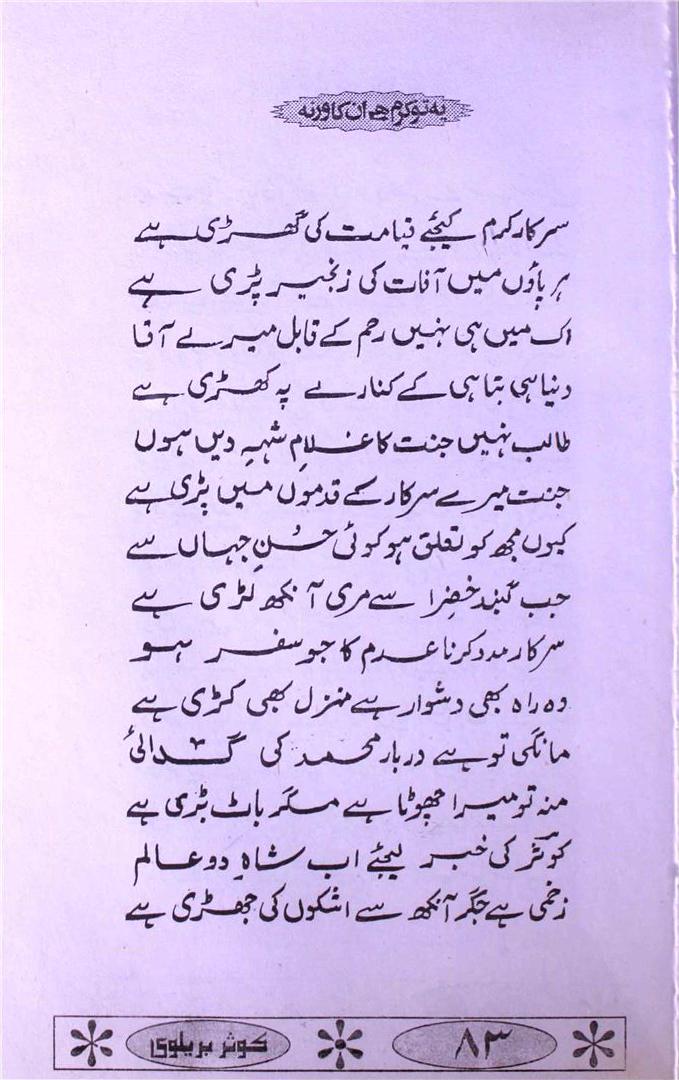 یہ تو کرم ہے ان کا ورنہ
سرکار کرم کیجئے قیامت کی گھڑی ہے
ہر پاؤں میں آفات کی زنجیر پڑی ہے
اک میں ہی نہیں رحم کے قابل میرے آقا
دنیا ہی تباہی کے کنارے پہ کھڑی ہے
طالب نہیں جنت کا غلامِ شہہِ دیں ہوں
جنت میرے سرکار کے قدموں میں پڑی ہے
کیوں مجھ کو تعلق ہو کوئی حسنِ جہاں سے
جب گنبد خضرا سے مری آنکھ لڑی ہے
سرکار مدد کرنا عدم کا جو سفر ہو
وہ راہ بھی دشوار ہے منزل بھی کڑی ہے
مانگی تو ہے دربار محمد کی گدائی
منہ تو میرا چھوٹا ہے مگر بات بڑی ہے
کوثر کی خبر لیجئے اب شاہِ دو عالم
زخمی ہے جگر آنکھ سے اشکوں کی جھڑی ہے
۸۳
کوثر بریلوی